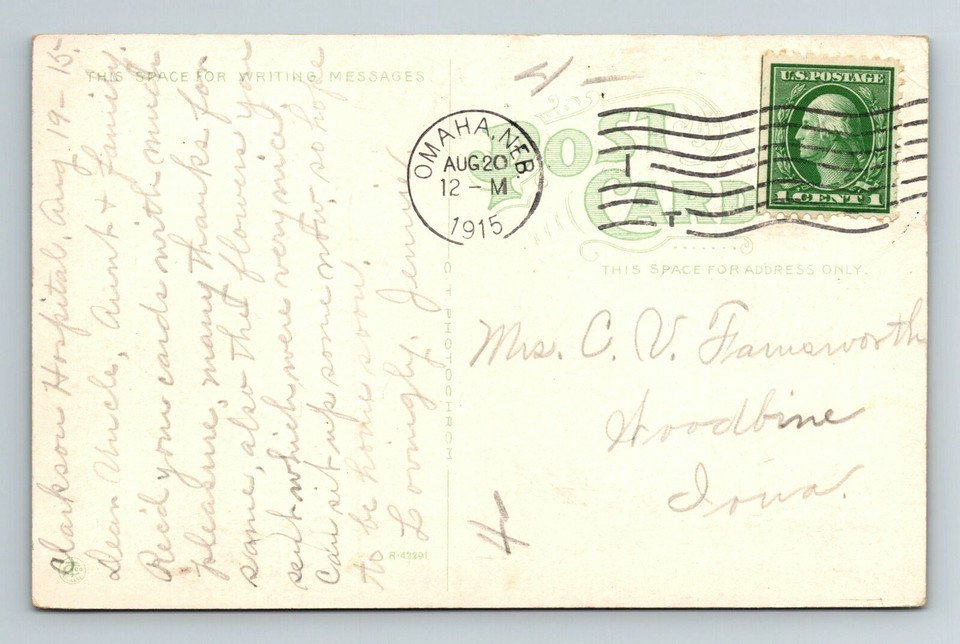 THIS SPACE FOR WRITING MESSAGES
Clarkson Hospital, Aug 19-15
Dear Uncle, Aunt & family
Rec'd your cards with much
pleasure, many thanks for
same, also the flowers you
sent which were very nice
can sit up some now, so hope
to be home soon.
Lovingly. Jennie
C.T. PHOTOCHROM
R-42291
POST CARD
OMAHA, NEB.
AUG 20
12 - M
1915
U.S. POSTAGE
1 CENT 1
THIS SPACE FOR ADDRESS ONLY.
Mrs. C. V. Farnsworth
Woodbine
Iowa.
4